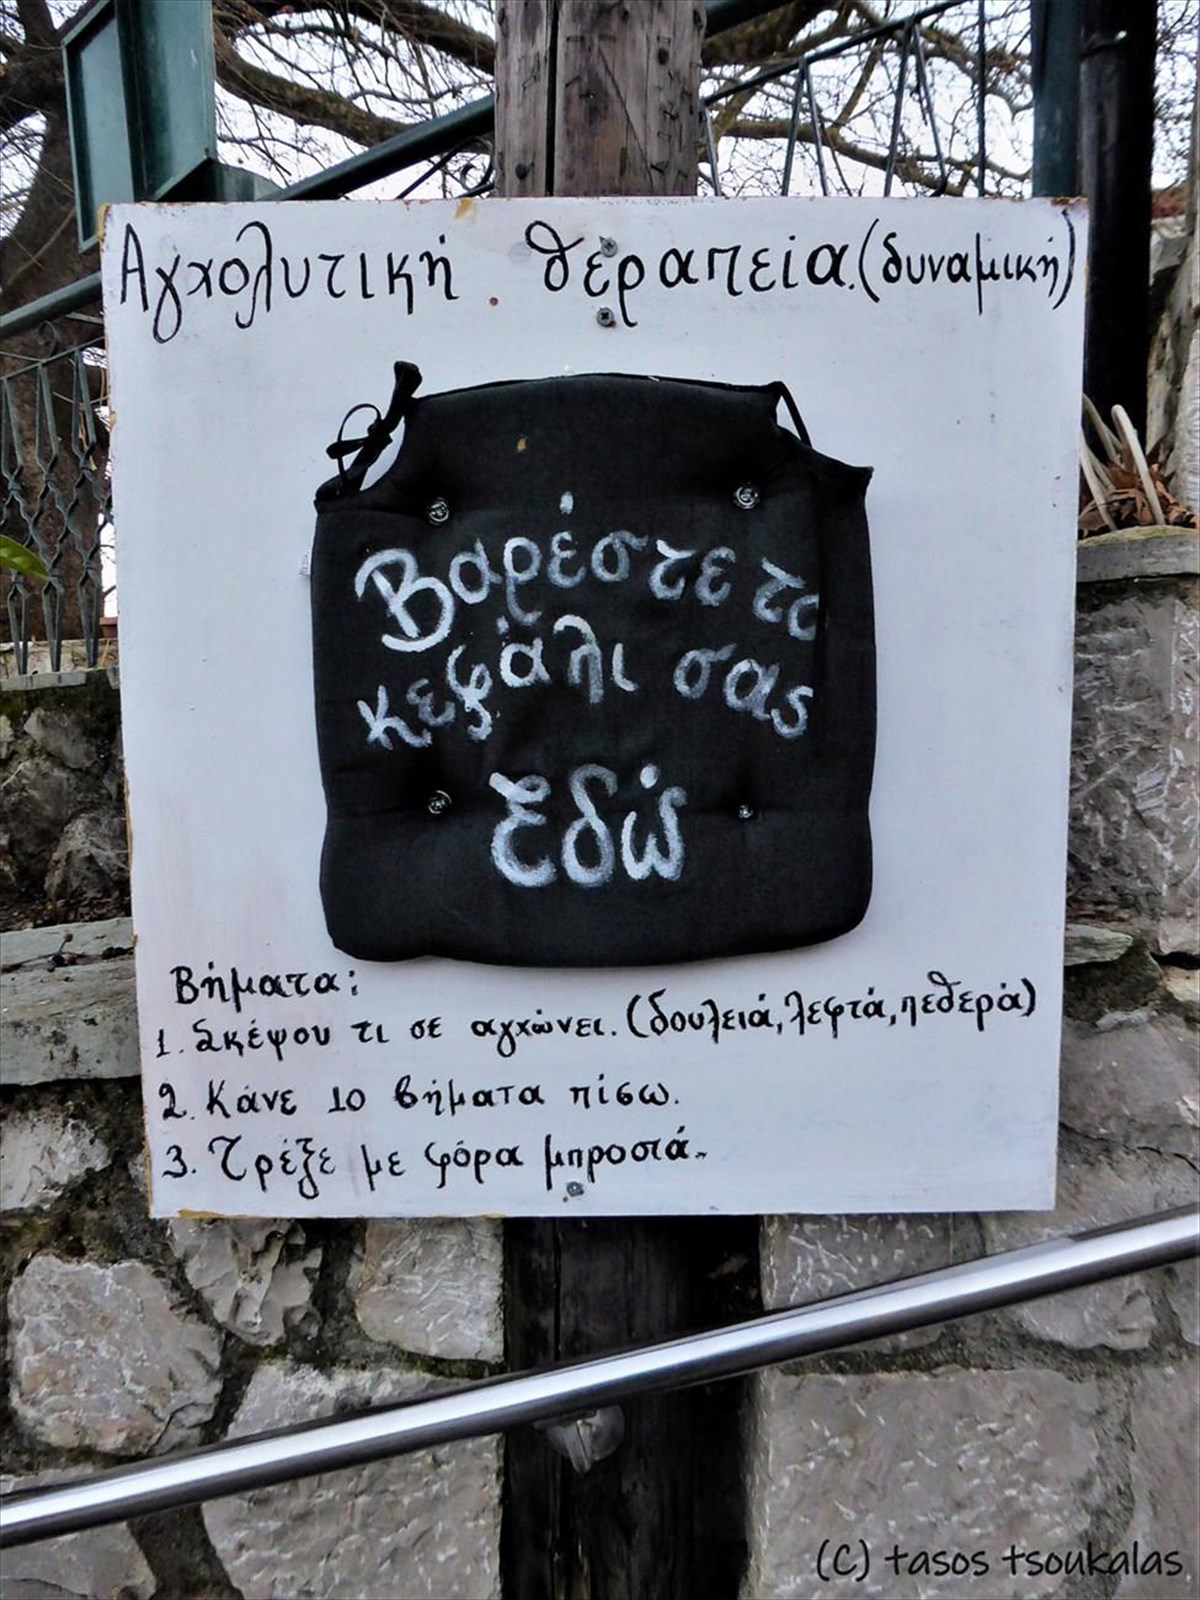 Αγχολυτική θεραπεία.(δυναμική)
Βαρέστε το
κεφάλι σας
Εδώ
Βήματα:
1. Σκέψου τι σε αγχώνει. (δουλειά, λεφτά, πεθερά)
2. Κάνε 10 βήματα πίσω.
3. Τρέξε με φόρα μπροστά.
(C) tasos tsoukalas